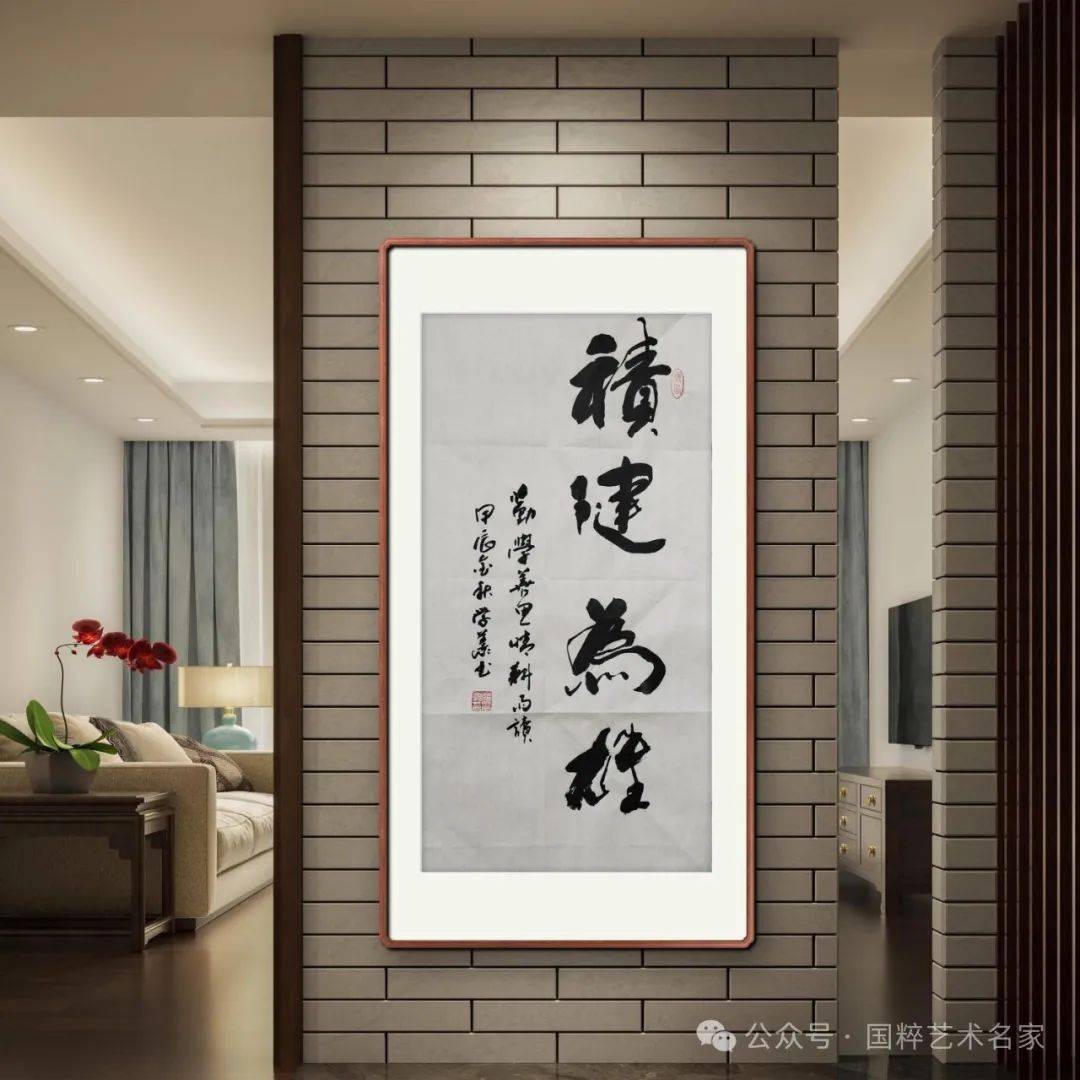 積健為雄
勤學善思晴耕雨讀
甲辰金秋学義书
公众号·国粹艺术名家